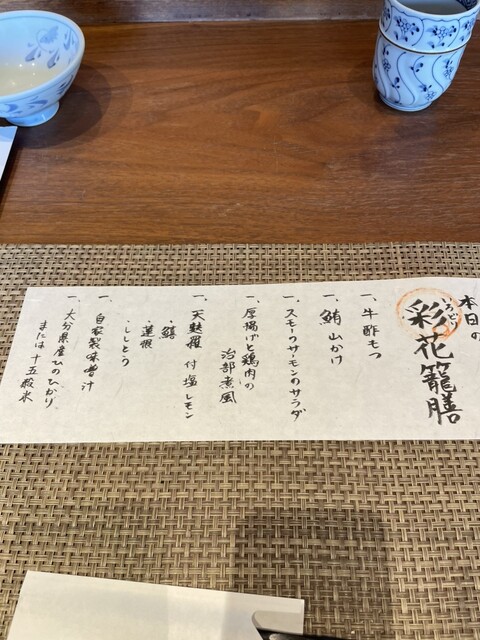 本日の
彩り
いろどり
花籠膳
一、牛酢もつ
一、鮪山かけ
一、スモークサーモンのサラダ
一、厚揚げと鶏肉の
治部煮風
一、天麩羅 付塩レモン
・鱚
・蓮根
・ししとう
一、自家製味噌汁
一、大分県産ひのひかり
または十五穀米